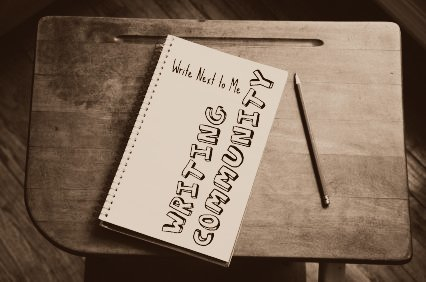 Write Next to Me
WRITING
COMMUNITY